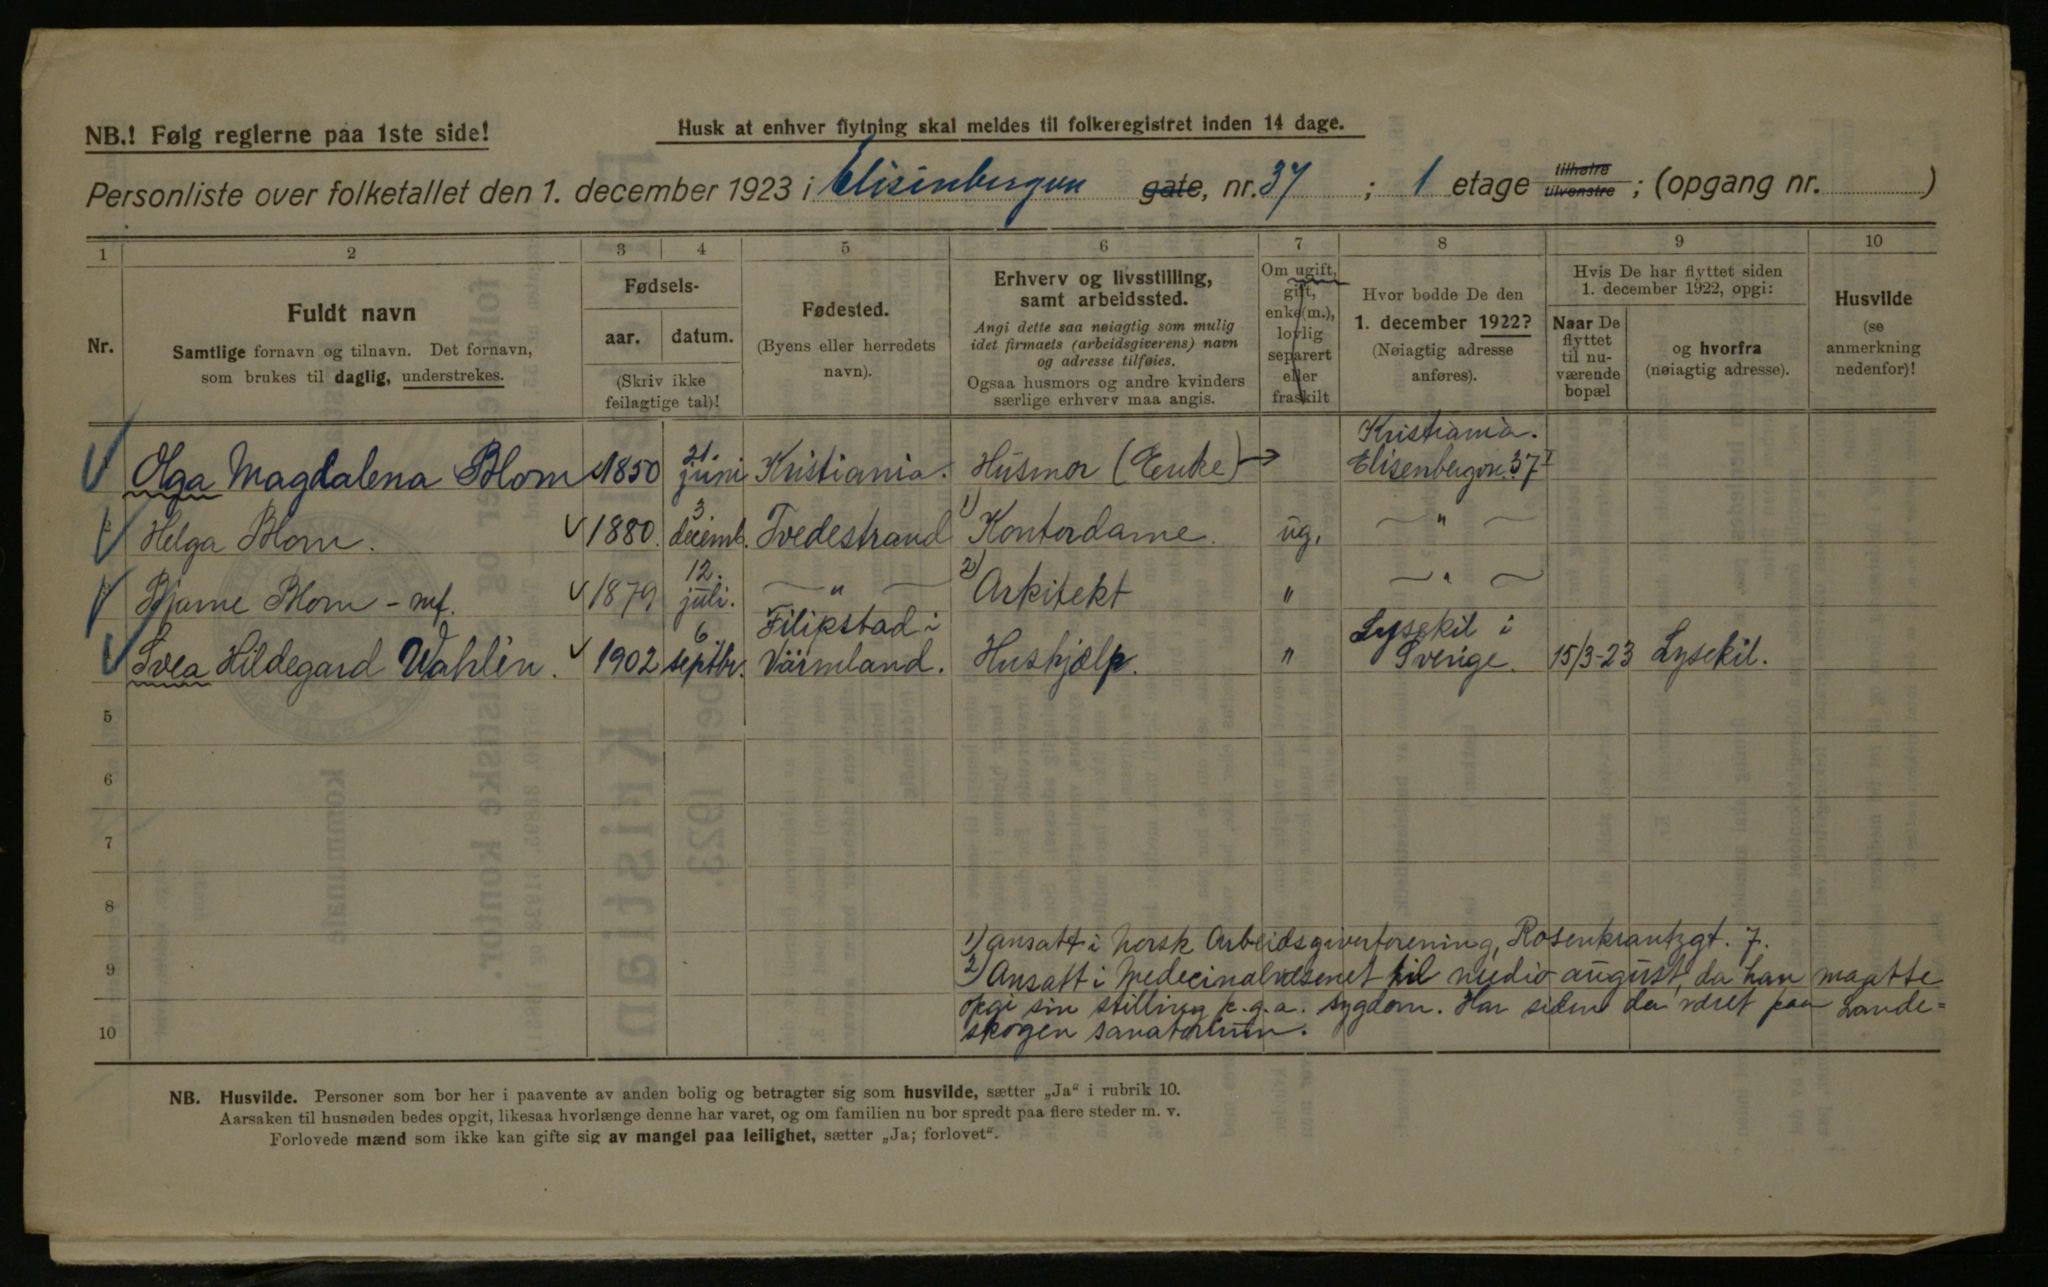 NB.! Følg reglerne paa 1ste side!
Husk at enhver flytning skal meldes til folkeregistret inden 14 dage.
Personliste over folketallet den 1. december 1923 i Elisinbergvn gate, nr. 37 ; 1 etage tilhøire tilvenstre ; (opgang nr. )
1 2 3 4 5 6 7 8 9 10
Nr.
Fuldt navn
Samtlige fornavn og tilnavn. Det fornavn,
som brukes til daglig, understrekes.
Fødsels-
aar. datum.
(Skriv ikke
feilagtige tal)!
Fødested.
(Byens eller herredets
navn).
Erhverv og livsstilling,
samt arbeidssted.
Angi dette saa nøiagtig som mulig
idet firmaets (arbeidsgiverens) navn
og adresse tilføies.
Ogsaa husmors og andre kvinders
særlige erhverv maa angis.
Om ugift,
gift,
enke(m.),
lovlig
separert
eller
fraskilt
Hvor bodde De den
1. december 1922?
(Nøiagtig adresse
anføres).
Hvis De har flyttet siden
1. december 1922, opgi:
Naar De
flyttet
til nu-
værende
bopæl
og hvorfra
(nøiagtig adresse).
Husvilde
(se
anmerkning
nedenfor)!
Olga Magdalena Blom 1850 21. juni Kristiania. Husmor (Enke) → Kristiania. Elisenbergvn. 37 I
Helga Blom. 1880. 3 decemb. Tvedestrand 1) Kontordame. ug. — " —
Bjarne Blom - mf. 1879 12. juli. — " — 2) Arkitekt " — " —
Svea Hildegard Wahlén. 1902 6. septbr. Filipstad i Värmland. Hushjælp. " Lysekil i Sverige. 15/3-23 Lysekil.
5
6
7
8
9
10
1) Ansatt i Norsk Arbeidsgiverforening, Rosenkrantzgt. 7.
2) Ansatt i Medecinalvæsenet til medio august, da han maatte
opgi sin stilling p.g.a. sygdom. Har siden da været paa Lande-
skogen sanatorium.
NB. Husvilde. Personer som bor her i paavente av anden bolig og betragter sig som husvilde, sætter „Ja“ i rubrik 10.
Aarsaken til husnøden bedes opgit, likesaa hvorlænge denne har varet, og om familien nu bor spredt paa flere steder m. v.
Forlovede mænd som ikke kan gifte sig av mangel paa leilighet, sætter „Ja; forlovet“.